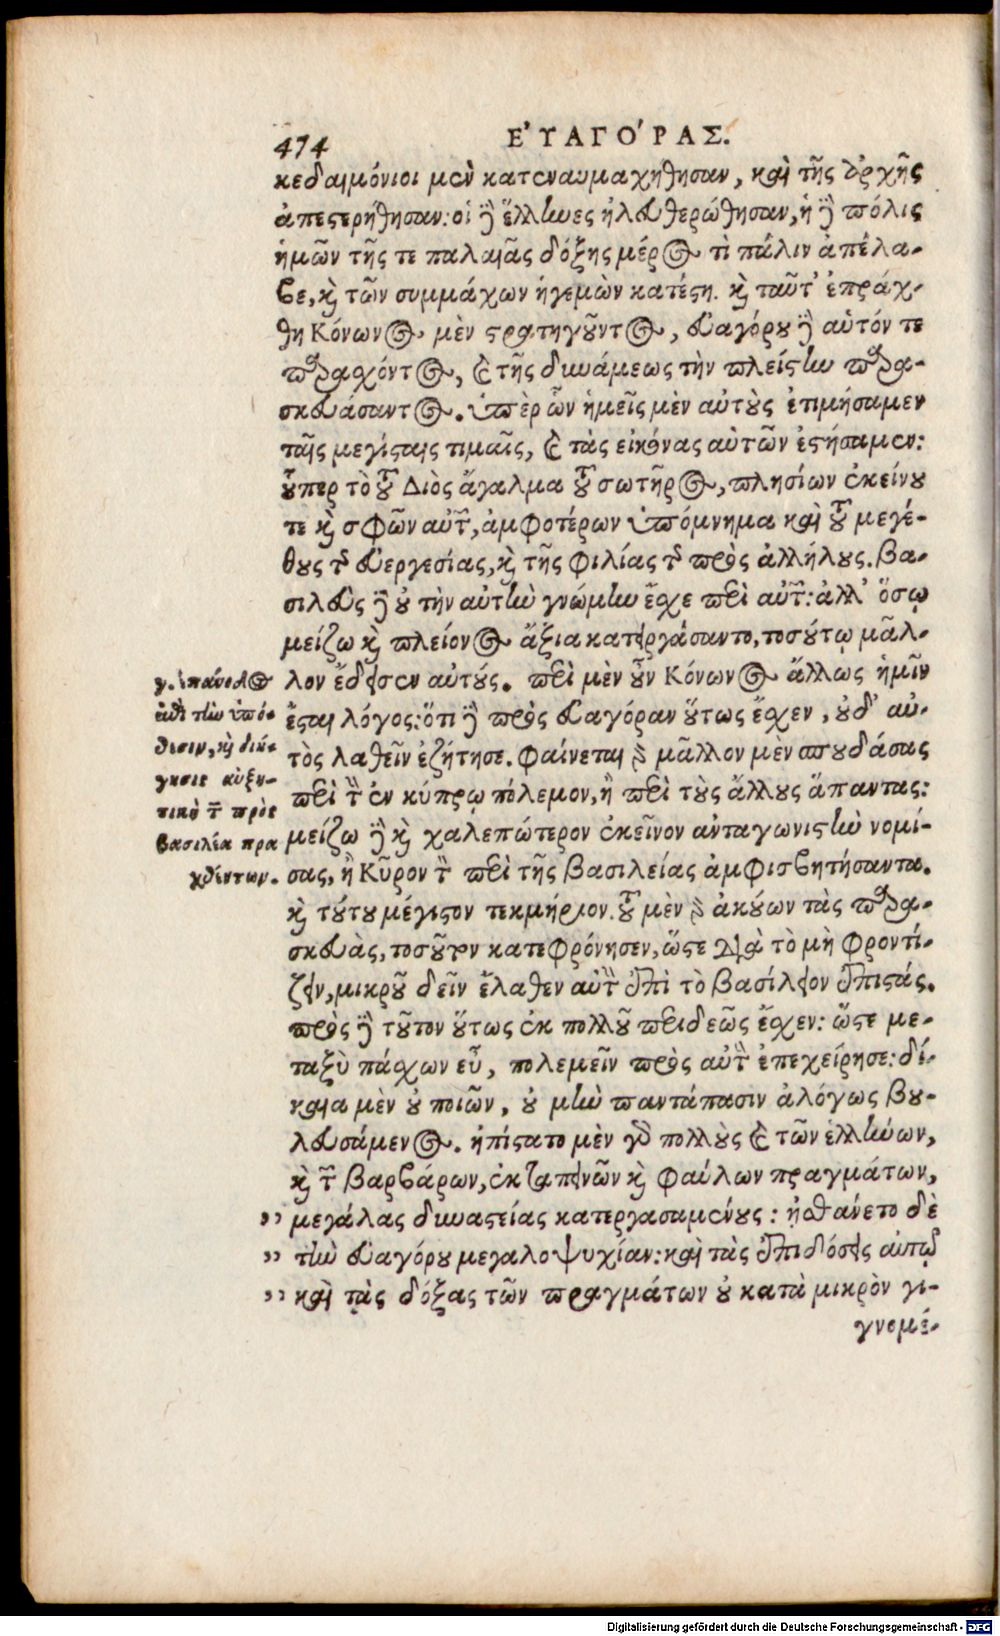 474
ΕὐΑΓΌΡΑΣ.
κεδαιμόνιοι μὲν κατεναυμαχήθησαν, καὶ τῆς ἀρχῆς
ἀπεστερήθησαν: οἱ δὲ ἕλληνες ἠλευθερώθησαν, ἡ δὲ πόλις
ἡμῶν τῆς τε παλαιᾶς δόξης μέρος τὶ πάλιν ἀπέλα-
βε, καὶ τῶν συμμάχων ἡγεμὼν κατέστη. καὶ ταῦτ' ἐπράχ-
θη Κόνωνος μὲν στρατηγοῦντος, εὐαγόρου δὲ αὑτόν τε
παραχόντος, καὶ τῆς δυνάμεως τὴν πλείστην παρα-
σκευάσαντος. ὑπὲρ ὧν ἡμεῖς μὲν αὐτοὺς ἐτιμήσαμεν
ταῖς μεγίσταις τιμαῖς, καὶ τὰς εἰκόνας αὐτῶν ἐστήσαμεν:
οὗπερ τὸ τοῦ Διὸς ἄγαλμα τοῦ σωτῆρος, πλησίων ἐκείνου
τε καὶ σφῶν αὐτῶν, ἀμφοτέρων ὑπόμνημα καὶ τοῦ μεγέ-
θους τῆς εὐεργεσίας, καὶ τῆς φιλίας τῆς πρὸς ἀλλήλους. βα-
σιλεὺς δὲ οὐ τὴν αὐτὴν γνώμην ἔσχε περὶ αὐτῶν: ἀλλ' ὅσῳ
μείζω καὶ πλείονος ἄξια κατειργάσαντο, τοσούτῳ μᾶλ-
λον ἔδεισεν αὐτούς. περὶ μὲν οὖν Κόνωνος ἄλλως ἡμῖν
ἔσται λόγος: ὅτι δὲ πρὸς εὐαγόραν οὕτως ἔσχεν, οὐδ' αὐ-
τὸς λαθεῖν ἐζήτησε. φαίνεται γὰρ μᾶλλον μὲν σπουδάσας
περὶ τὸν ἐν κύπρῳ πόλεμον, ἢ περὶ τοὺς ἄλλους ἅπαντας:
μείζω δὲ καὶ χαλεπώτερον ἐκεῖνον ἀνταγωνιστὴν νομί-
σας, ἢ Κῦρον τὸν περὶ τῆς βασιλείας ἀμφισβητήσαντα.
καὶ τούτου μέγιστον τεκμήριον. τοῦ μὲν γὰρ ἀκούων τὰς παρα-
σκευὰς, τοσοῦτον κατεφρόνησεν, ὥστε διὰ τὸ μὴ φροντί-
ζειν, μικροῦ δεῖν ἔλαθεν αὐτὸν ἐπὶ τὸ βασίλειον ἐπιστάς.
πρὸς δὲ τοῦτον οὕτως ἐκ πολλοῦ περιδεῶς ἔσχεν: ὥστε με-
ταξὺ πάσχων εὖ, πολεμεῖν πρὸς αὐτὸν ἐπεχείρησε: δί-
καια μὲν οὐ ποιῶν, οὐ μὴν παντάπασιν ἀλόγως βου-
λευσάμενος. ἠπίστατο μὲν γὰρ πολλοὺς καὶ τῶν ἑλλήνων,
καὶ τῶν βαρβάρων, ἐκ ταπεινῶν καὶ φαύλων πραγμάτων,
,, μεγάλας δυναστείας κατεργασαμένους: ᾐσθάνετο δὲ
,, τὴν εὐαγόρου μεγαλοψυχίαν: καὶ τὰς ἐπιδόσεις αὐτῷ
,, καὶ τὰς δόξας τῶν πραγμάτων οὐ κατὰ μικρὸν γι-
γνομέ-
γ. ἐπάνοδος
ἐπὶ τὴν ὑπό-
θεσιν, καὶ διή-
γησις αὐξη-
τικὴ τῶν πρὸς
βασιλέα πρα
χθέντων.
Digitalisierung gefördert durch die Deutsche Forschungsgemeinschaft - DFG